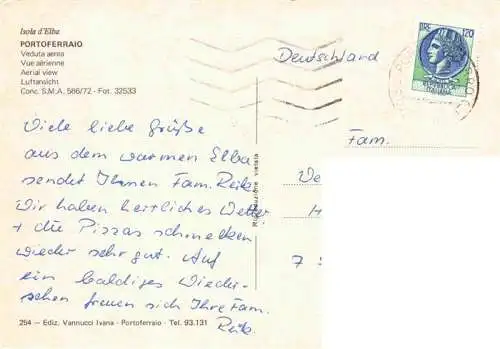 Isola d'Elba
PORTOFERRAIO
Veduta aerea
Vue aérienne
Aerial view
Luftansicht
Conc. S.M.A. 586/72 - Fot. 32533
Deutschland
LIRE 120
Fam.
Viele liebe Grüße
aus dem warmen Elba
sendet Ihnen Fam. Reik.
Wir haben herrliches Wetter
+ die Pizzas schmecken
wieder sehr gut. Auf
ein baldiges Wieder-
sehen freuen sich Ihre Fam.
Reik.
Riproduzione vietata
254 — Ediz. Vannucci Ivana - Portoferraio - Tel. 93.131